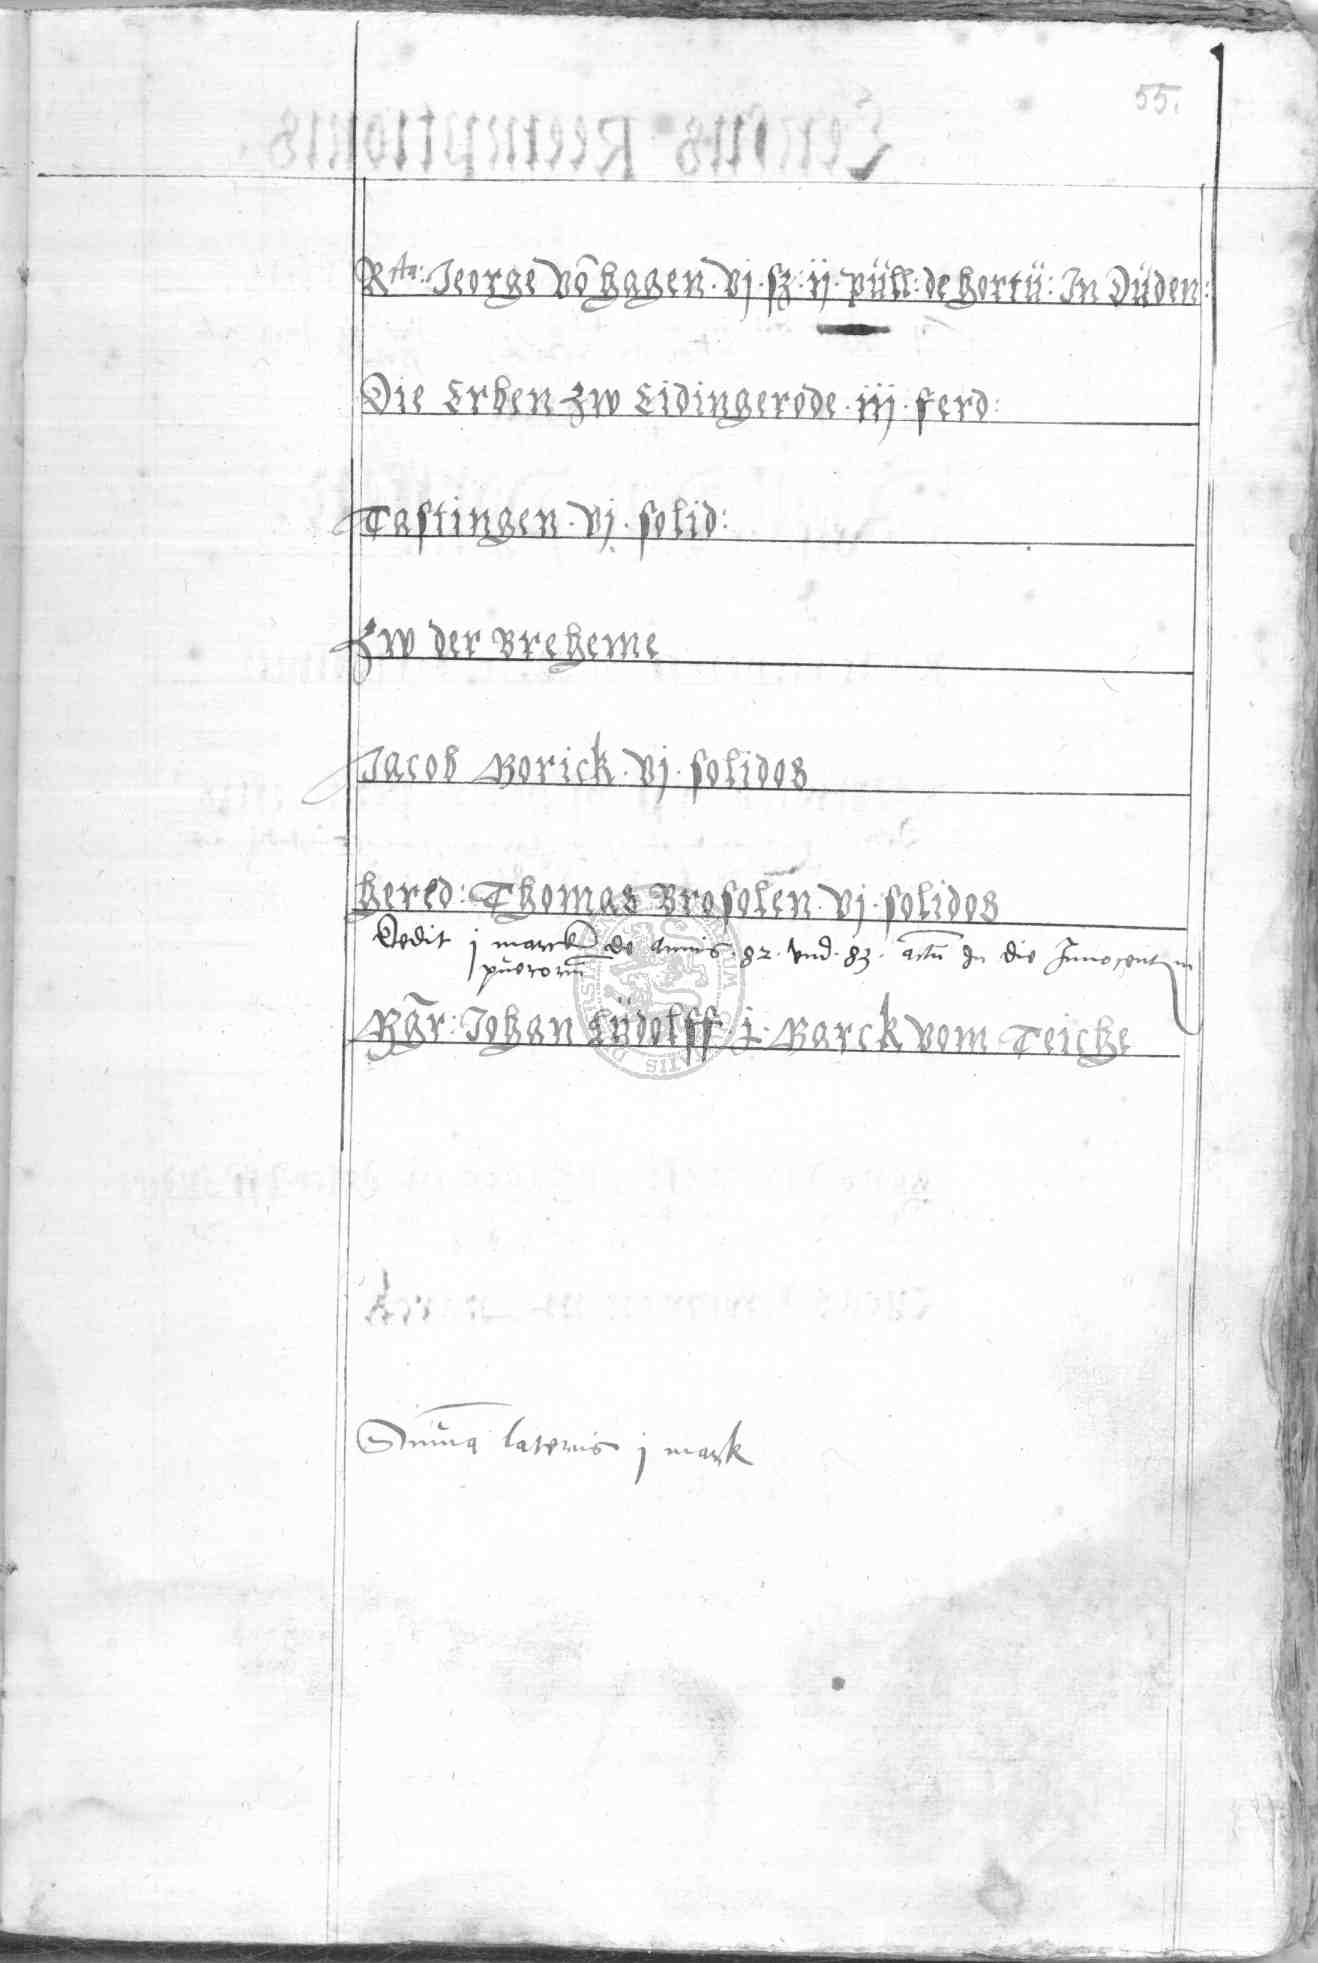 55.
Rta: Jeorge võ hagen · vj · sz · ij · püll: de hortü: In Düden:
Die Erben zw Lidingerode · iij · ferd:
Tastingen · vj · solid:
Zw der Breheme
Jacob Borick · vj · solidos
hered: Thomas Brosolen · vj · solidos
Dedit j marck de annis · 82 · vnd · 83 · actū In die Innocentum
püerorū
Johan Lüdolff · j · Marck vom Teiche
Suma lateris j mark